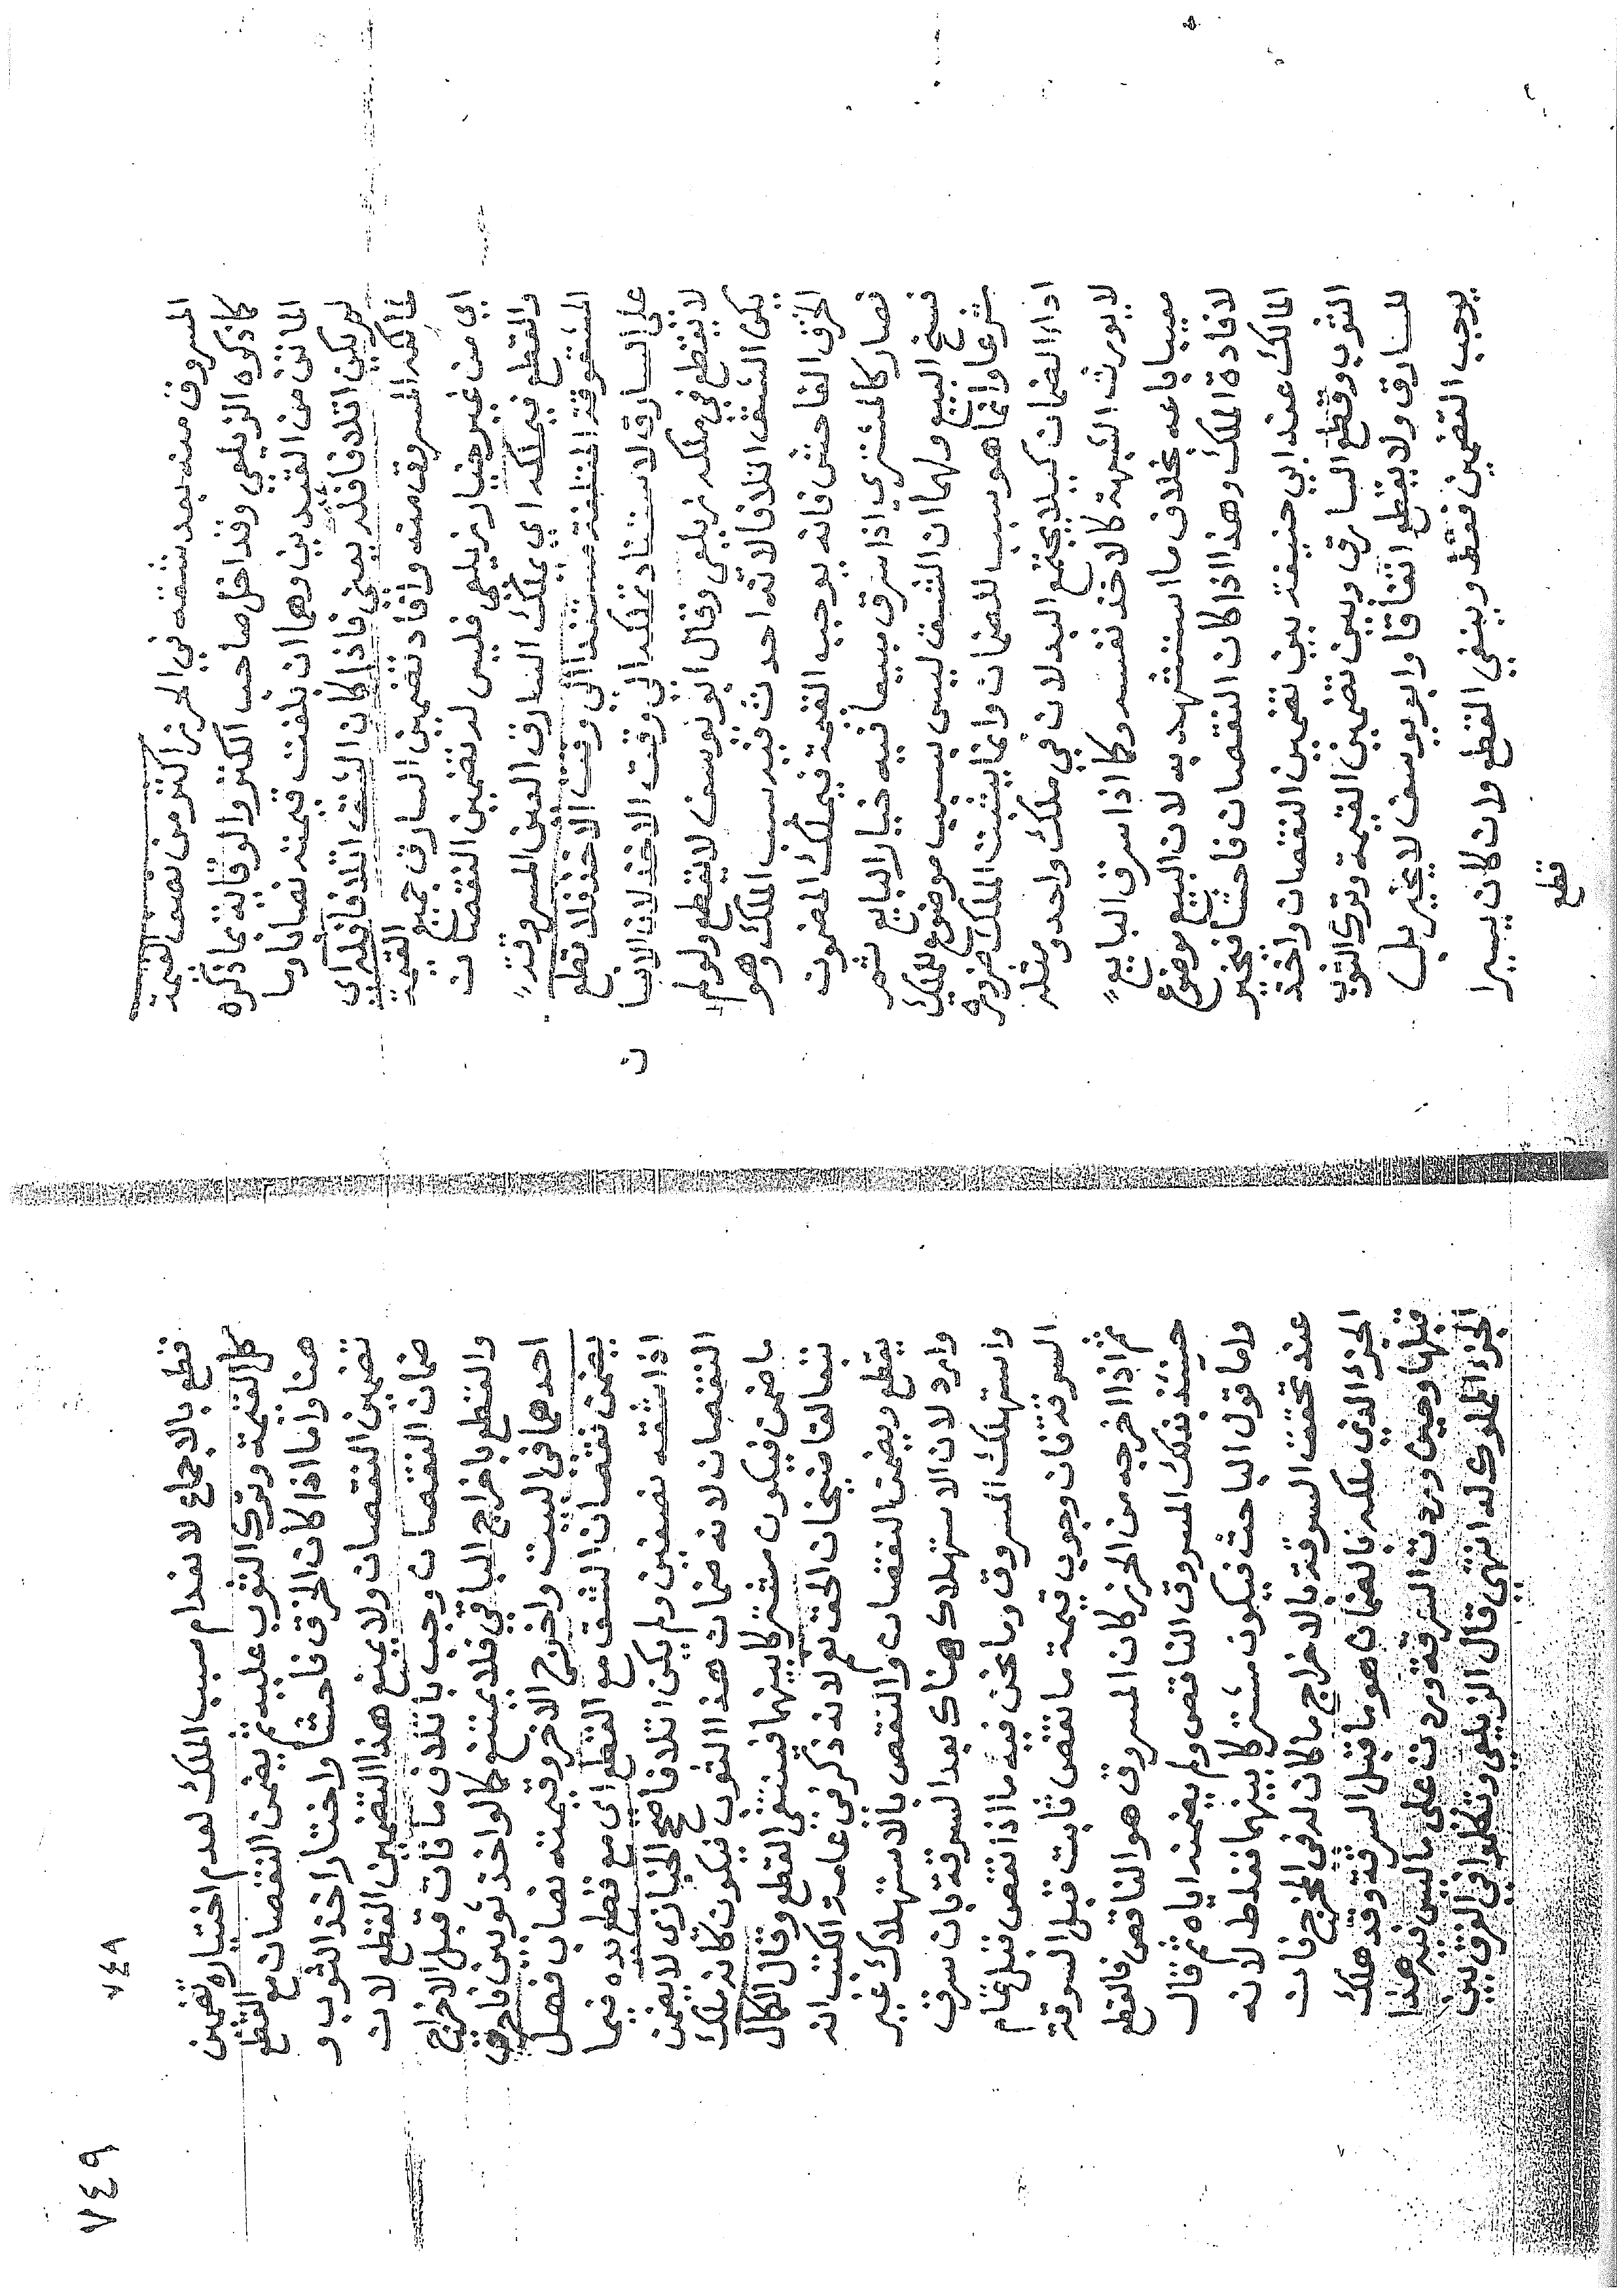 المسروق منه بعد شقه في الحرز اكثر من نصف القيمة
كما ذكره الزيلعي وقد اخل صاحب الكنز والوقاية بما ذكره
الماتن من القيدين وهما ان بلغت قيمته نصابا وما
لم يكن اتلافا فله يعني فاذا كان الشق اتلافا فله اي
لمالكه المسروق منه وافاد تضمين السارق جميع القيمة
اي من غير خيار زيلعي فليس له تضمين النقصان
والقطع فيملكه اي يملك السارق العين المسروقة
المشقوقة المتلفة مستندا الي وقت الاخذ فلا قطع
علي السارق لاستناد تملكه الي وقت الاخذ لان الانسان
لا يقطع في ملكه زيلعي وقال ابو يوسف لا يقطع ولو لم
يكن الشق اتلافا لانه احدث فيه سبب الملك وهو
الخرق الفاحش فانه يوجب القيمة فيملك المضمون
فصار كالمشتري اذا سرق مبيعا فيه خيار البايع ثم
فسخ البيع ولهما ان الشق ليس بسبب موضوع للملك
شرعا وانما هو سبب للضمان وانما يثبت الملك ضرورة
اداء الضمان كيلا يجتمع البدلان في ملك واحد ومثله
لا يورث الشبهة كالاخذ نفسه وكما اذا سرق البايع
معيبا باعه بخلاف ما استشهد به لان البيع موضوع
لافادة الملك وهذا اذا كان النقصان فاحشا فيخير
المالك عند ابي حنيفة بين تضمين النقصان واخذ
الثوب وقطع السارق وبين تضمين القيمة وترك الثوب
للسارق ولا يقطع اتفاقا وابو يوسف لا يخير بل
يوجب التضمين فقط وينفي القطع وان كان يسيرا
قطع
٧٤٩
٧٤٩
قطع بالاجماع لانعدام سبب الملك لعدم اختياره تضمين
كل القيمة وترك الثوب عليه ثم يضمن النقصان مع القطع
هنا واما اذا كان الخرق فاحشا واختار اخذ الثوب و
تضمين النقصان ولا يمنع هذا التضمين القطع لان
ضمان النقصان وجب باتلاف ما فات قبل الاخراج
والقطع باخراج الباقي فلا يمتنع كما لو اخذ ثوبين فاحرق
احدهما في البيت واخرج الاخر وقيمته نصاب فصل
يضمن نقصان الشق مع القطع اي مع قطع يده فيما
اذا شقه نصفين ولم يكن اتلافا صحح الخبازي لا يضمن
النقصان لانه ضمان هذا الثوب فيكون كانه ملك
ما ضمن فيكون مشتركا بينهما فينتفي القطع وقال الكمال
نقلا لقاضيخان الحق نعم لانه ذكر في عامة الكتب انه
يقطع ويضمن النقصان والنقض بالاستهلاك غير
وارد لان الاستهلاك هناك بعد السرقة بان سرق
واستهلك المسروق وما نحن فيه ما اذا نقص قبل تمام
السرقة فان وجوب قيمة ما نقص ثابت قبل السرقة
ثم اذا اخرجه من الحرز كان المسروق هو الناقص فالقطع
حينئذ بذلك المسروق الناقص ولم يضمنه اياه ثم قال
واما قول الباحث فيكون مشتركا بينهما فغلط لانه
عند تحقق السرقة بالاخراج ما كان له في المخرج فان
الجزء الذي ملكه بالضمان هو ما قبل السرقة وقد هلك
قبلها وحين وردت السرقة وردت علي ما ليس فيه هذا
الجزء المملوك له انتهي قال الزيلعي وتكلموا في الفرق بين